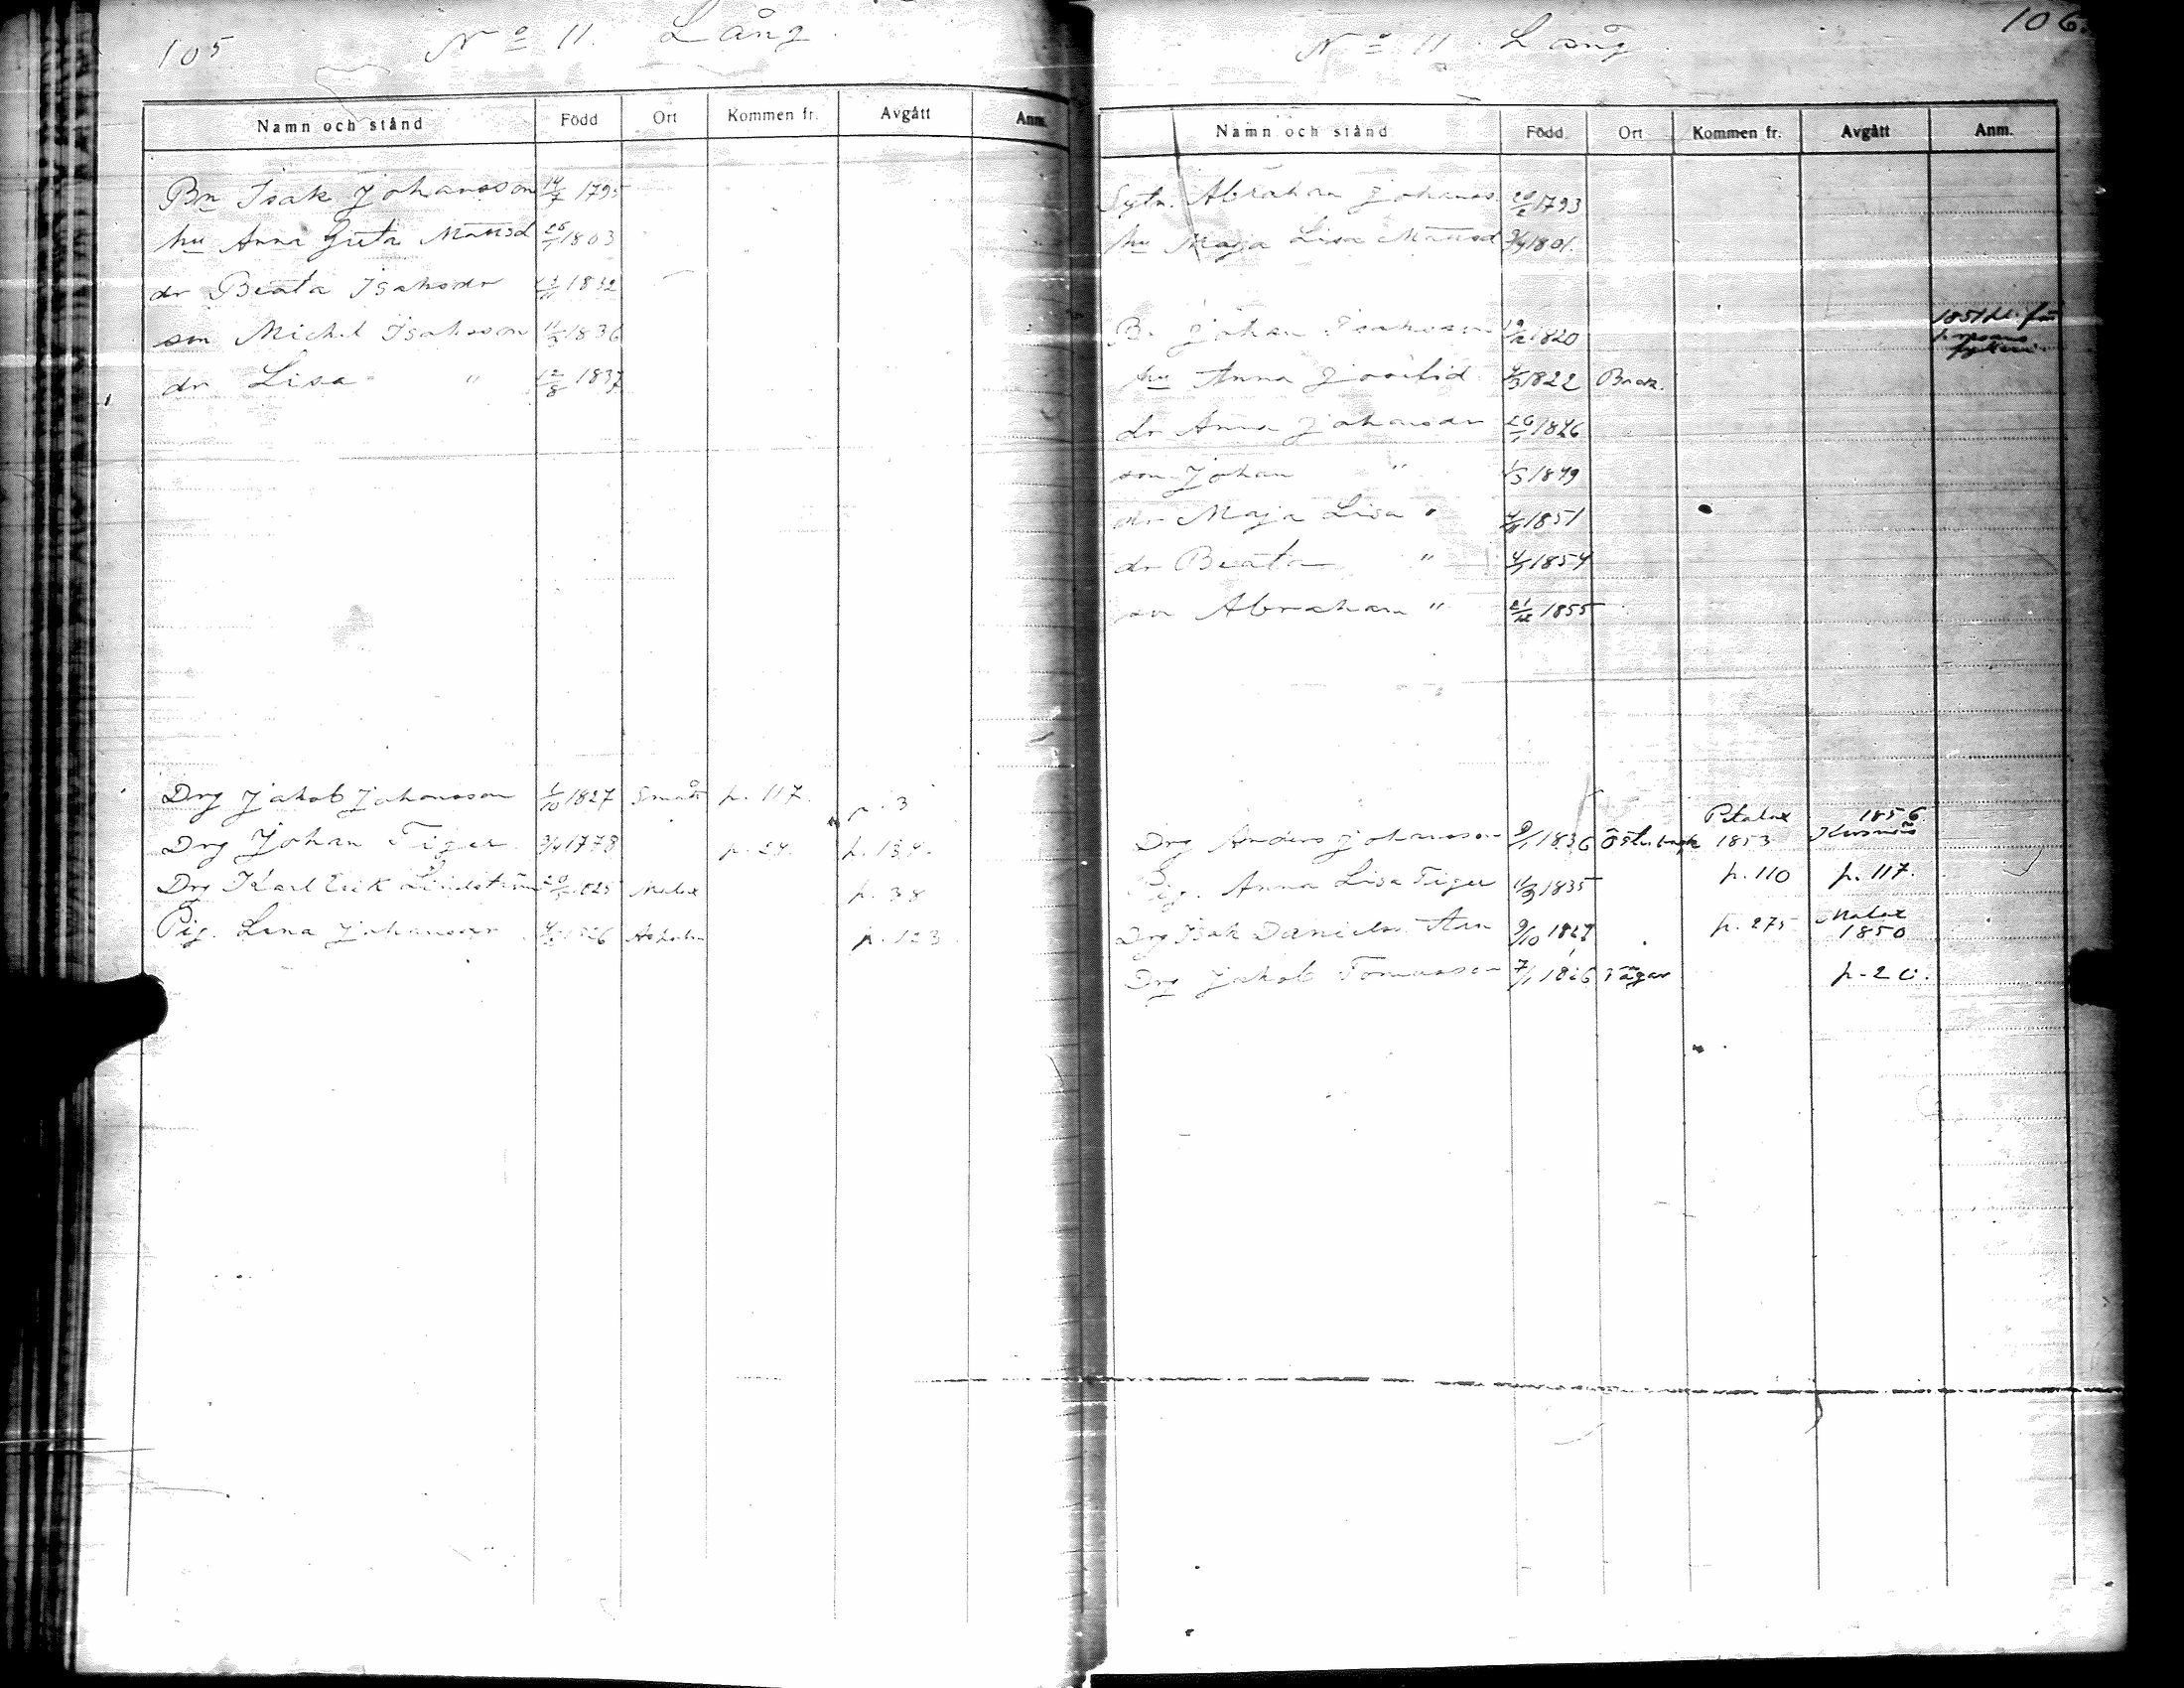 105
No 11. Lång.
Namn och stånd Född Ort Kommen fr. Avgått Anm.
Bn Isak Johansson 14/7 1795
hu Anna Greta Mattsd 26/1 1803
dr Beata Isaksdr 1832
son Michel Isaksson 1836
dr Lisa " 12/8 1837
Drg Jakob Johansson 1/10 1827 p. 117. p. 3
Drg Johan Tiger 3/4 1778 p. 24. p. 134.
Drg Karl Erik Lindström 1825 Malax p. 38
Pig. Lena Johansdr 1826 p. 123
106.
No 11. Lång.
Namn och stånd Född Ort Kommen fr. Avgått Anm.
Sytn. Abraham Johanss. 28/2 1793
hu Maja Lisa Mattsd 3/4 1801.
Bn Johan Isaksson 19/12 1820 1851
hu Anna 4/3 1822
dr Anna Johansdr 26/1 1846
son Johan " 1/5 1849
dr Maja Lisa " 1851
dr Beata " 1854
son Abraham " 21/12 1855
Drg Anders Johansson 9/1 1836 Österback Petalax 1853 1856
Pig. Anna Lisa Tiger 11/3 1835 p. 110 p. 117.
Drg Isak Daniels 9/10 1827 p. 275 Malax 1850
Drg Jakob Tomasson 7/1 1826 Tågar p. 20.